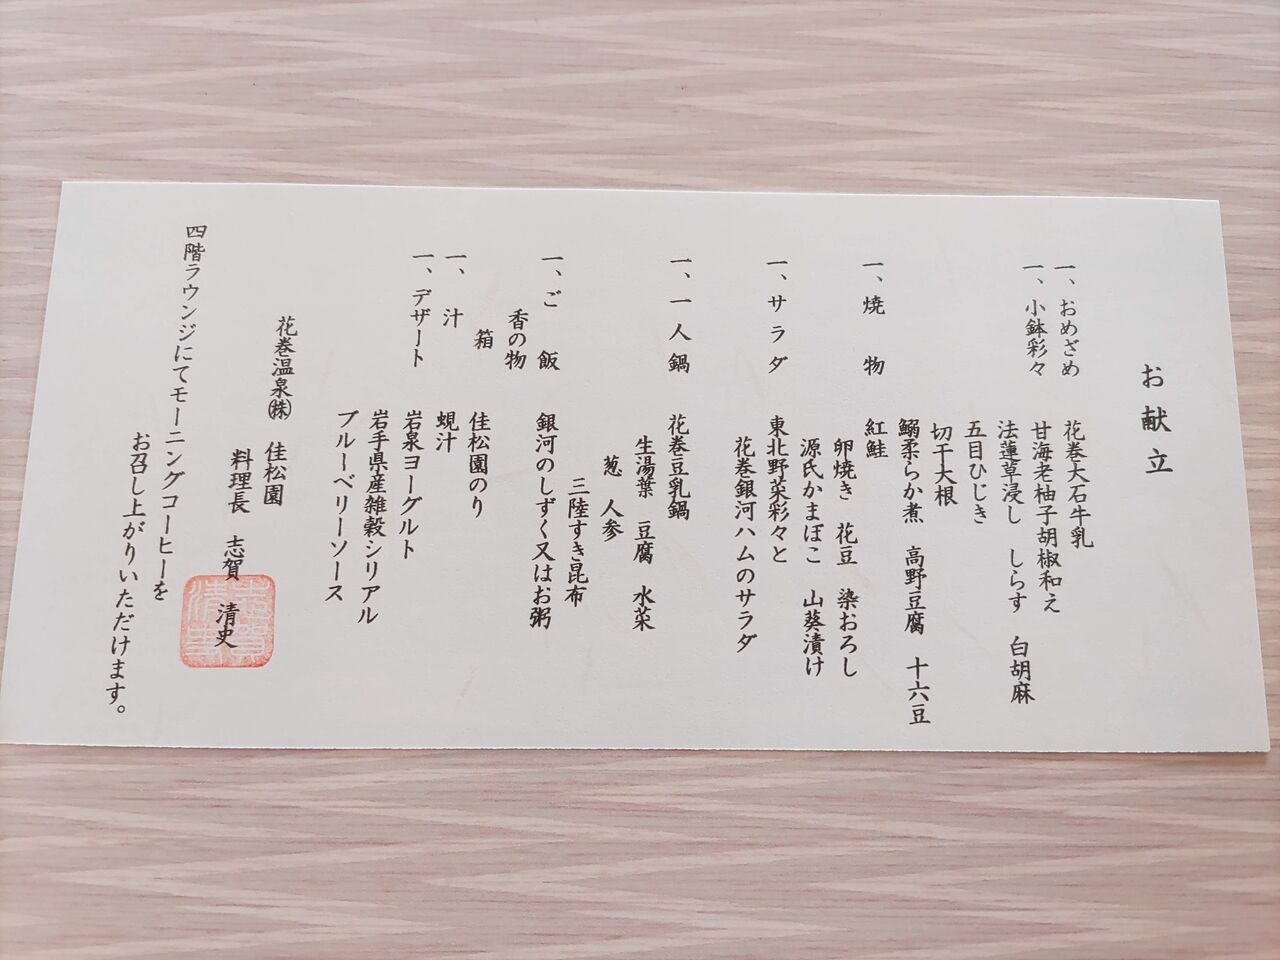 お献立
一、おめざめ　花巻大石牛乳
一、小鉢彩々　甘海老柚子胡椒和え
法蓮草浸し　しらす　白胡麻
五目ひじき
切干大根
鰯柔らか煮　高野豆腐　十六豆
一、焼物　紅鮭
卵焼き　花豆　染おろし
源氏かまぼこ　山葵漬け
一、サラダ　東北野菜彩々と
花巻銀河ハムのサラダ
一、一人鍋　花巻豆乳鍋
生湯葉　豆腐　水菜
葱　人参
三陸すき昆布
一、ご飯　銀河のしずく又はお粥
香の物
箱　佳松園のり
一、汁　蜆汁
一、デザート　岩泉ヨーグルト
岩手県産雑穀シリアル
ブルーベリーソース
花巻温泉㈱　佳松園
料理長　志賀　清史
志賀清史
四階ラウンジにてモーニングコーヒーを
お召し上がりいただけます。